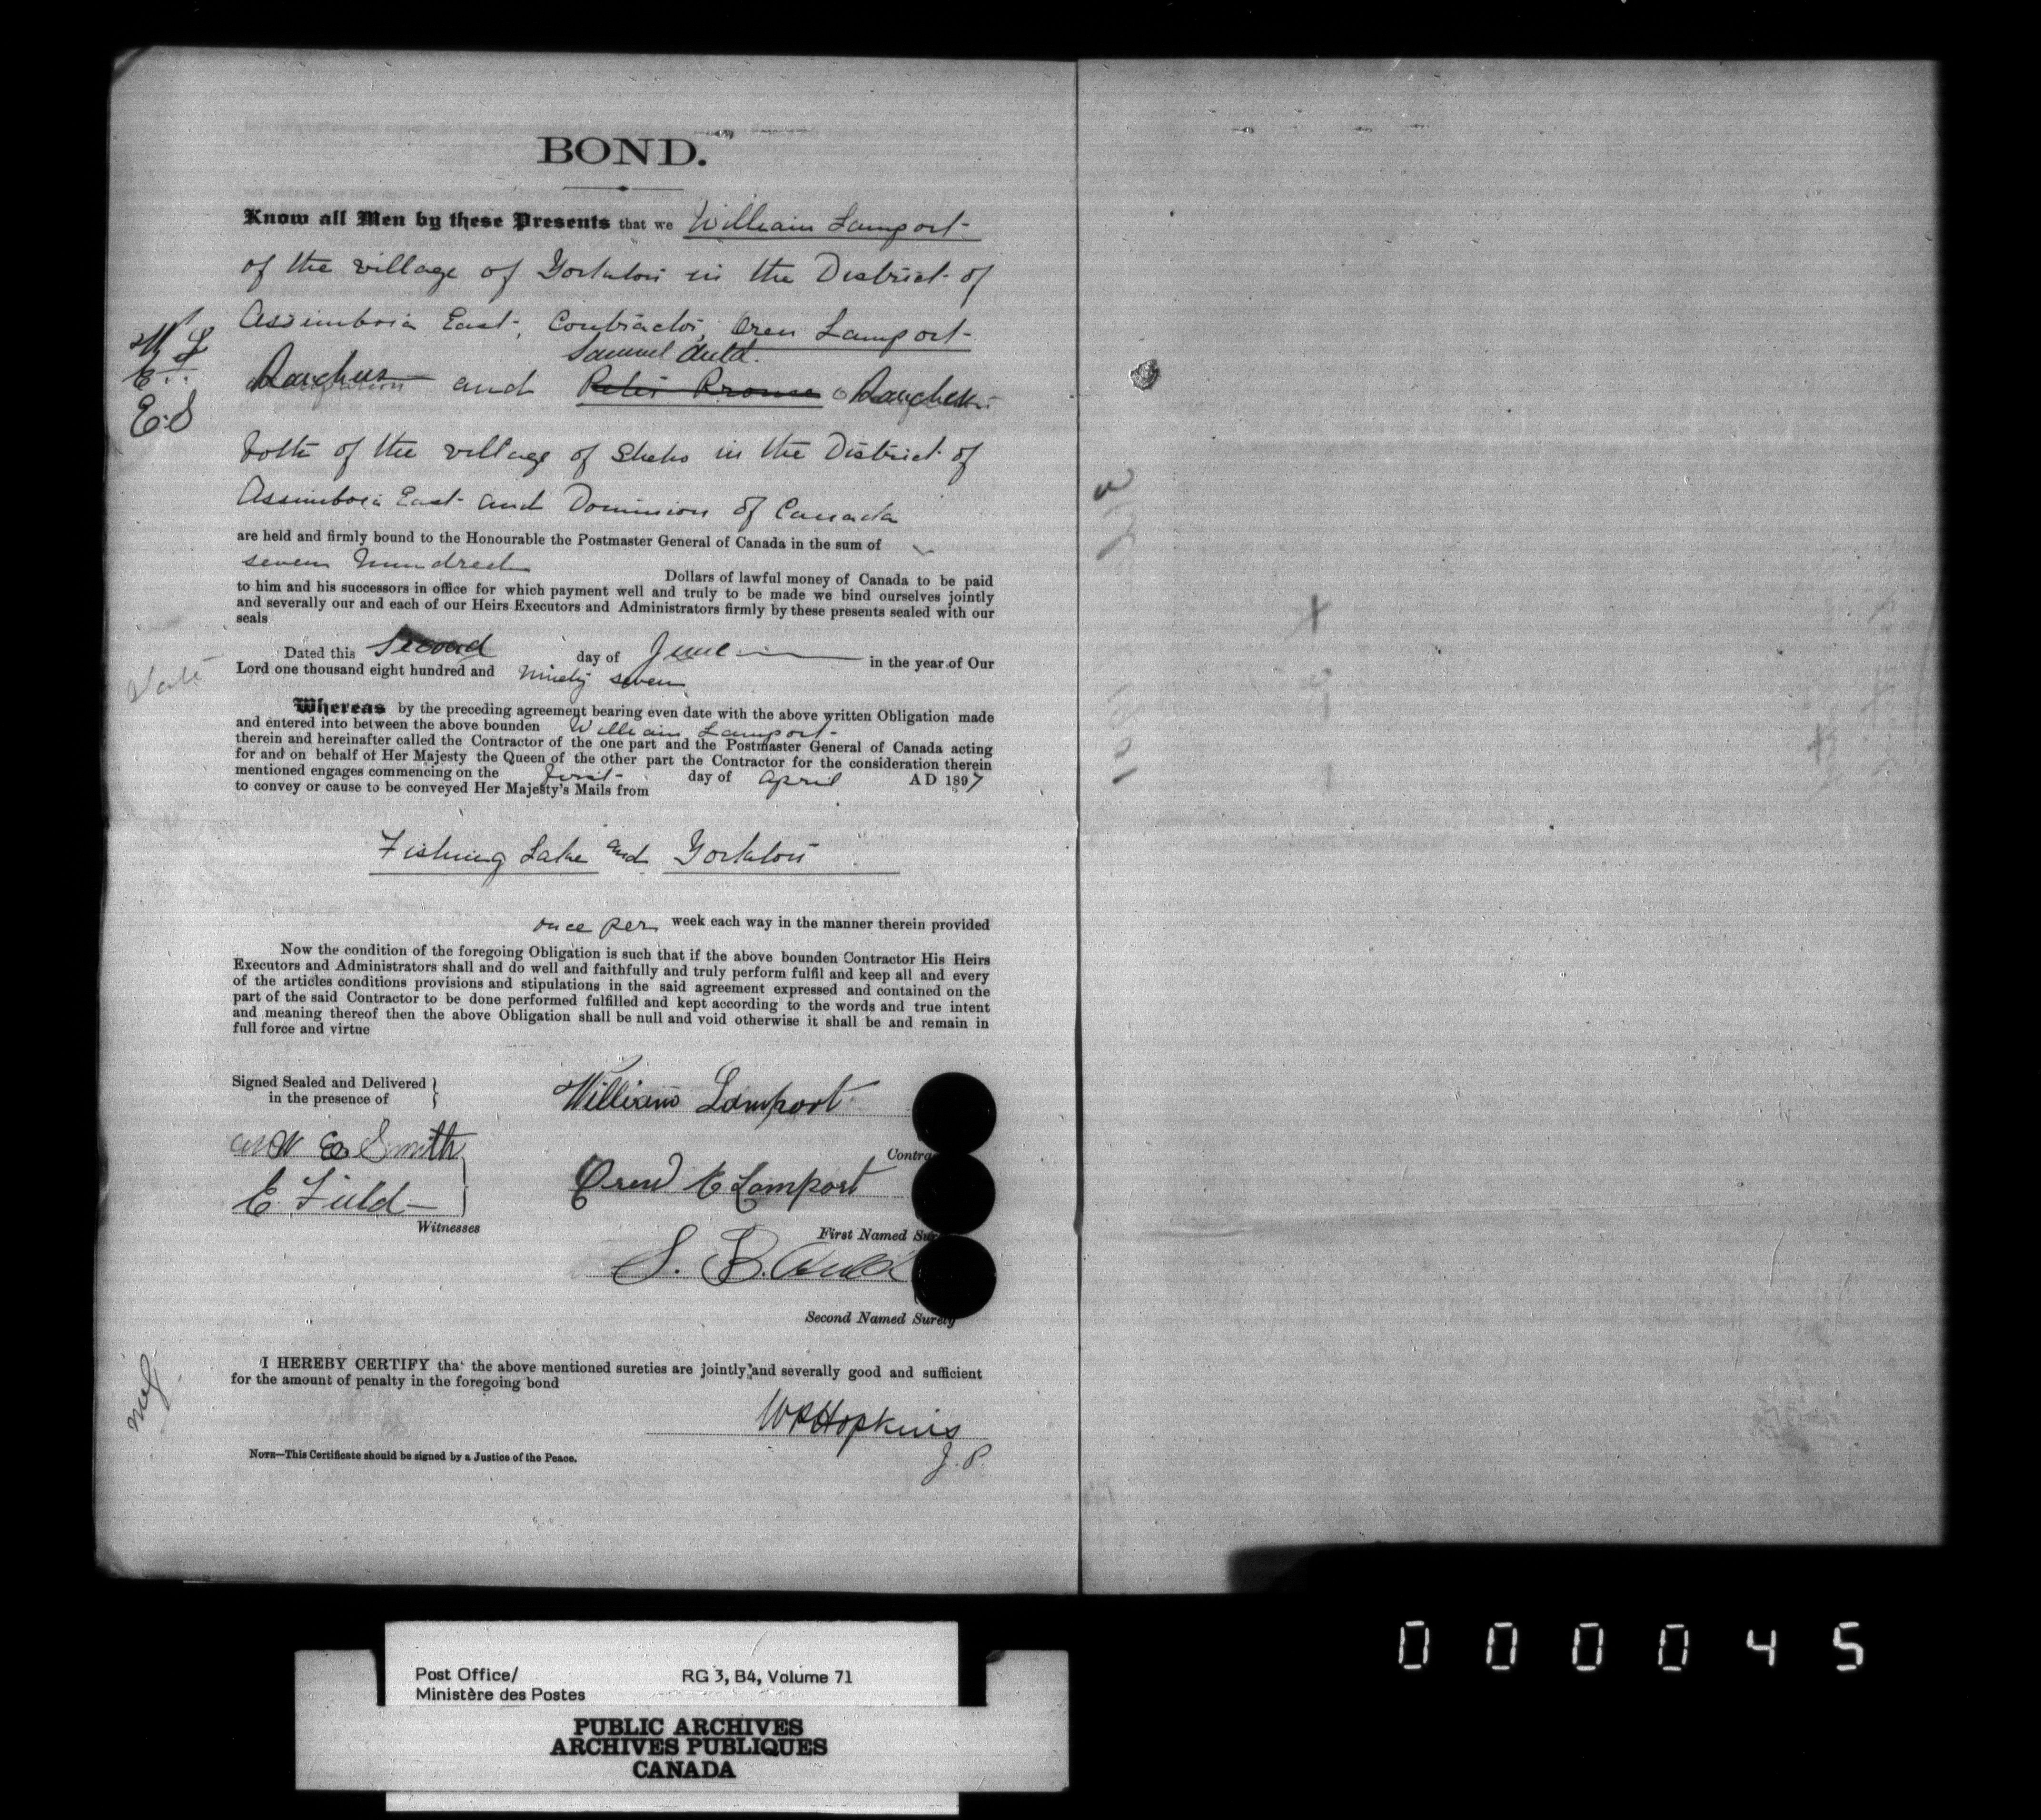 BOND.
Know all Men by these Presents that we William Lamport
of the village of Yorkton in the District of
Assiniboia East, Contractor, Oren Lamport
Samuel Auld.
W L
Rancher and Peter Krouse Rancher
E.S
both of the village of Sheho in the District of
Assiniboia East and Dominion of Canada
are held and firmly bound to the Honourable the Postmaster General of Canada in the sum of
seven hundred
Dollars of lawful money of Canada to be paid
to him and his successors in office for which payment well and truly to be made we bind ourselves jointly
and severally our and each of our Heirs Executors and Administrators firmly by these presents sealed with our
seals
Dated this Second day of June in the year of Our
Lord one thousand eight hundred and Ninety seven
Whereas by the preceding agreement bearing even date with the above written Obligation made
and entered into between the above bounden William Lamport
therein and hereinafter called the Contractor of the one part and the Postmaster General of Canada acting
for and on behalf of Her Majesty the Queen of the other part the Contractor for the consideration therein
mentioned engages commencing on the first day of April A D 1897
to convey or cause to be conveyed Her Majesty's Mails from
Fishing Lake and Yorkton
once per week each way in the manner therein provided
Now the condition of the foregoing Obligation is such that if the above bounden Contractor His Heirs
Executors and Administrators shall and do well and faithfully and truly perform fulfil and keep all and every
of the articles conditions provisions and stipulations in the said agreement expressed and contained on the
part of the said Contractor to be done performed fulfilled and kept according to the words and true intent
and meaning thereof then the above Obligation shall be null and void otherwise it shall be and remain in
full force and virtue
Signed Sealed and Delivered
in the presence of
William Lamport
Contra
Smith
Oren E Lamport
E. Field
Witnesses
First Named Sur
S. B. Auld
Second Named Surety
I HEREBY CERTIFY that the above mentioned sureties are jointly and severally good and sufficient
for the amount of penalty in the foregoing bond
W P Hopkins
J.P.
NOTE—This Certificate should be signed by a Justice of the Peace.
Post Office/ RG 3, B4, Volume 71
Ministère des Postes
PUBLIC ARCHIVES
ARCHIVES PUBLIQUES
CANADA
000045